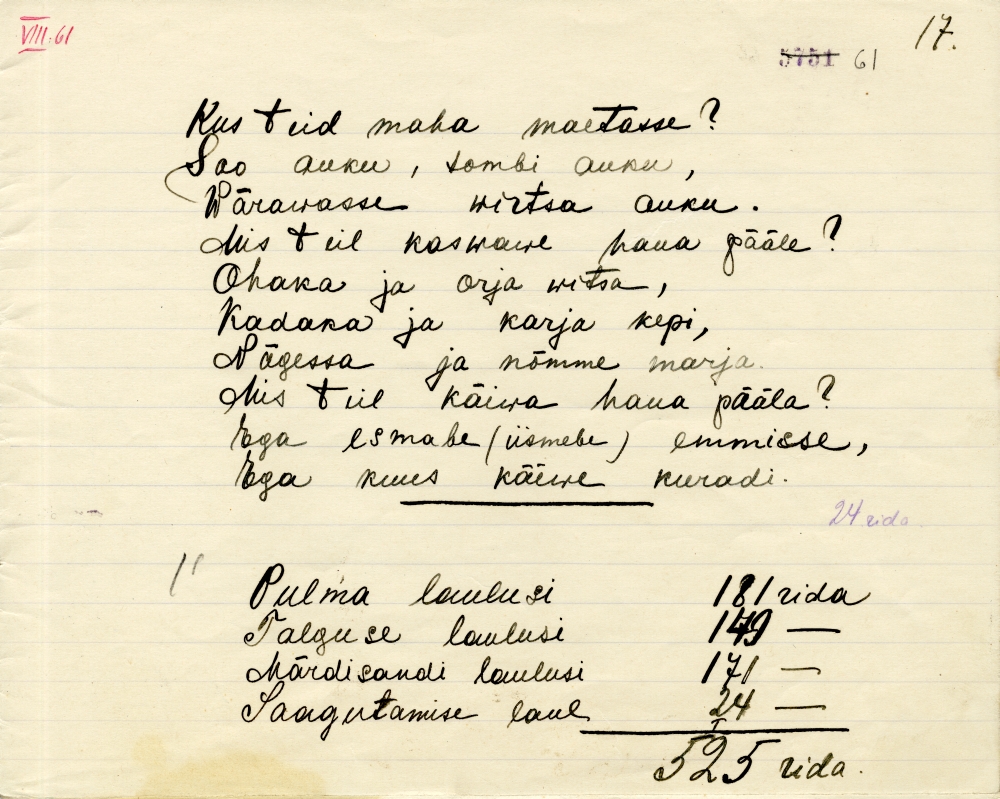 VIII. 61
17.
5751 61
Kus teid maha maetasse?
Soo auku, sombi auku,
Wärawasse wirtsa auku.
Mis teil kaswawe haua pääle?
Ohaka ja orja witsa,
Kadaka ja karja kepi,
Nägessa ja nõmme marja.
Mis teil käiwa haua pääla?
Ega esmabe (iismebe) emmisse,
Ega kuus käiwe kuradi.
24 rida
Pulma laulusi 181 rida
Talguse laulusi 149 —
Märdisandi laulusi 171 —
Saagutamise laul 24 —
525 rida.